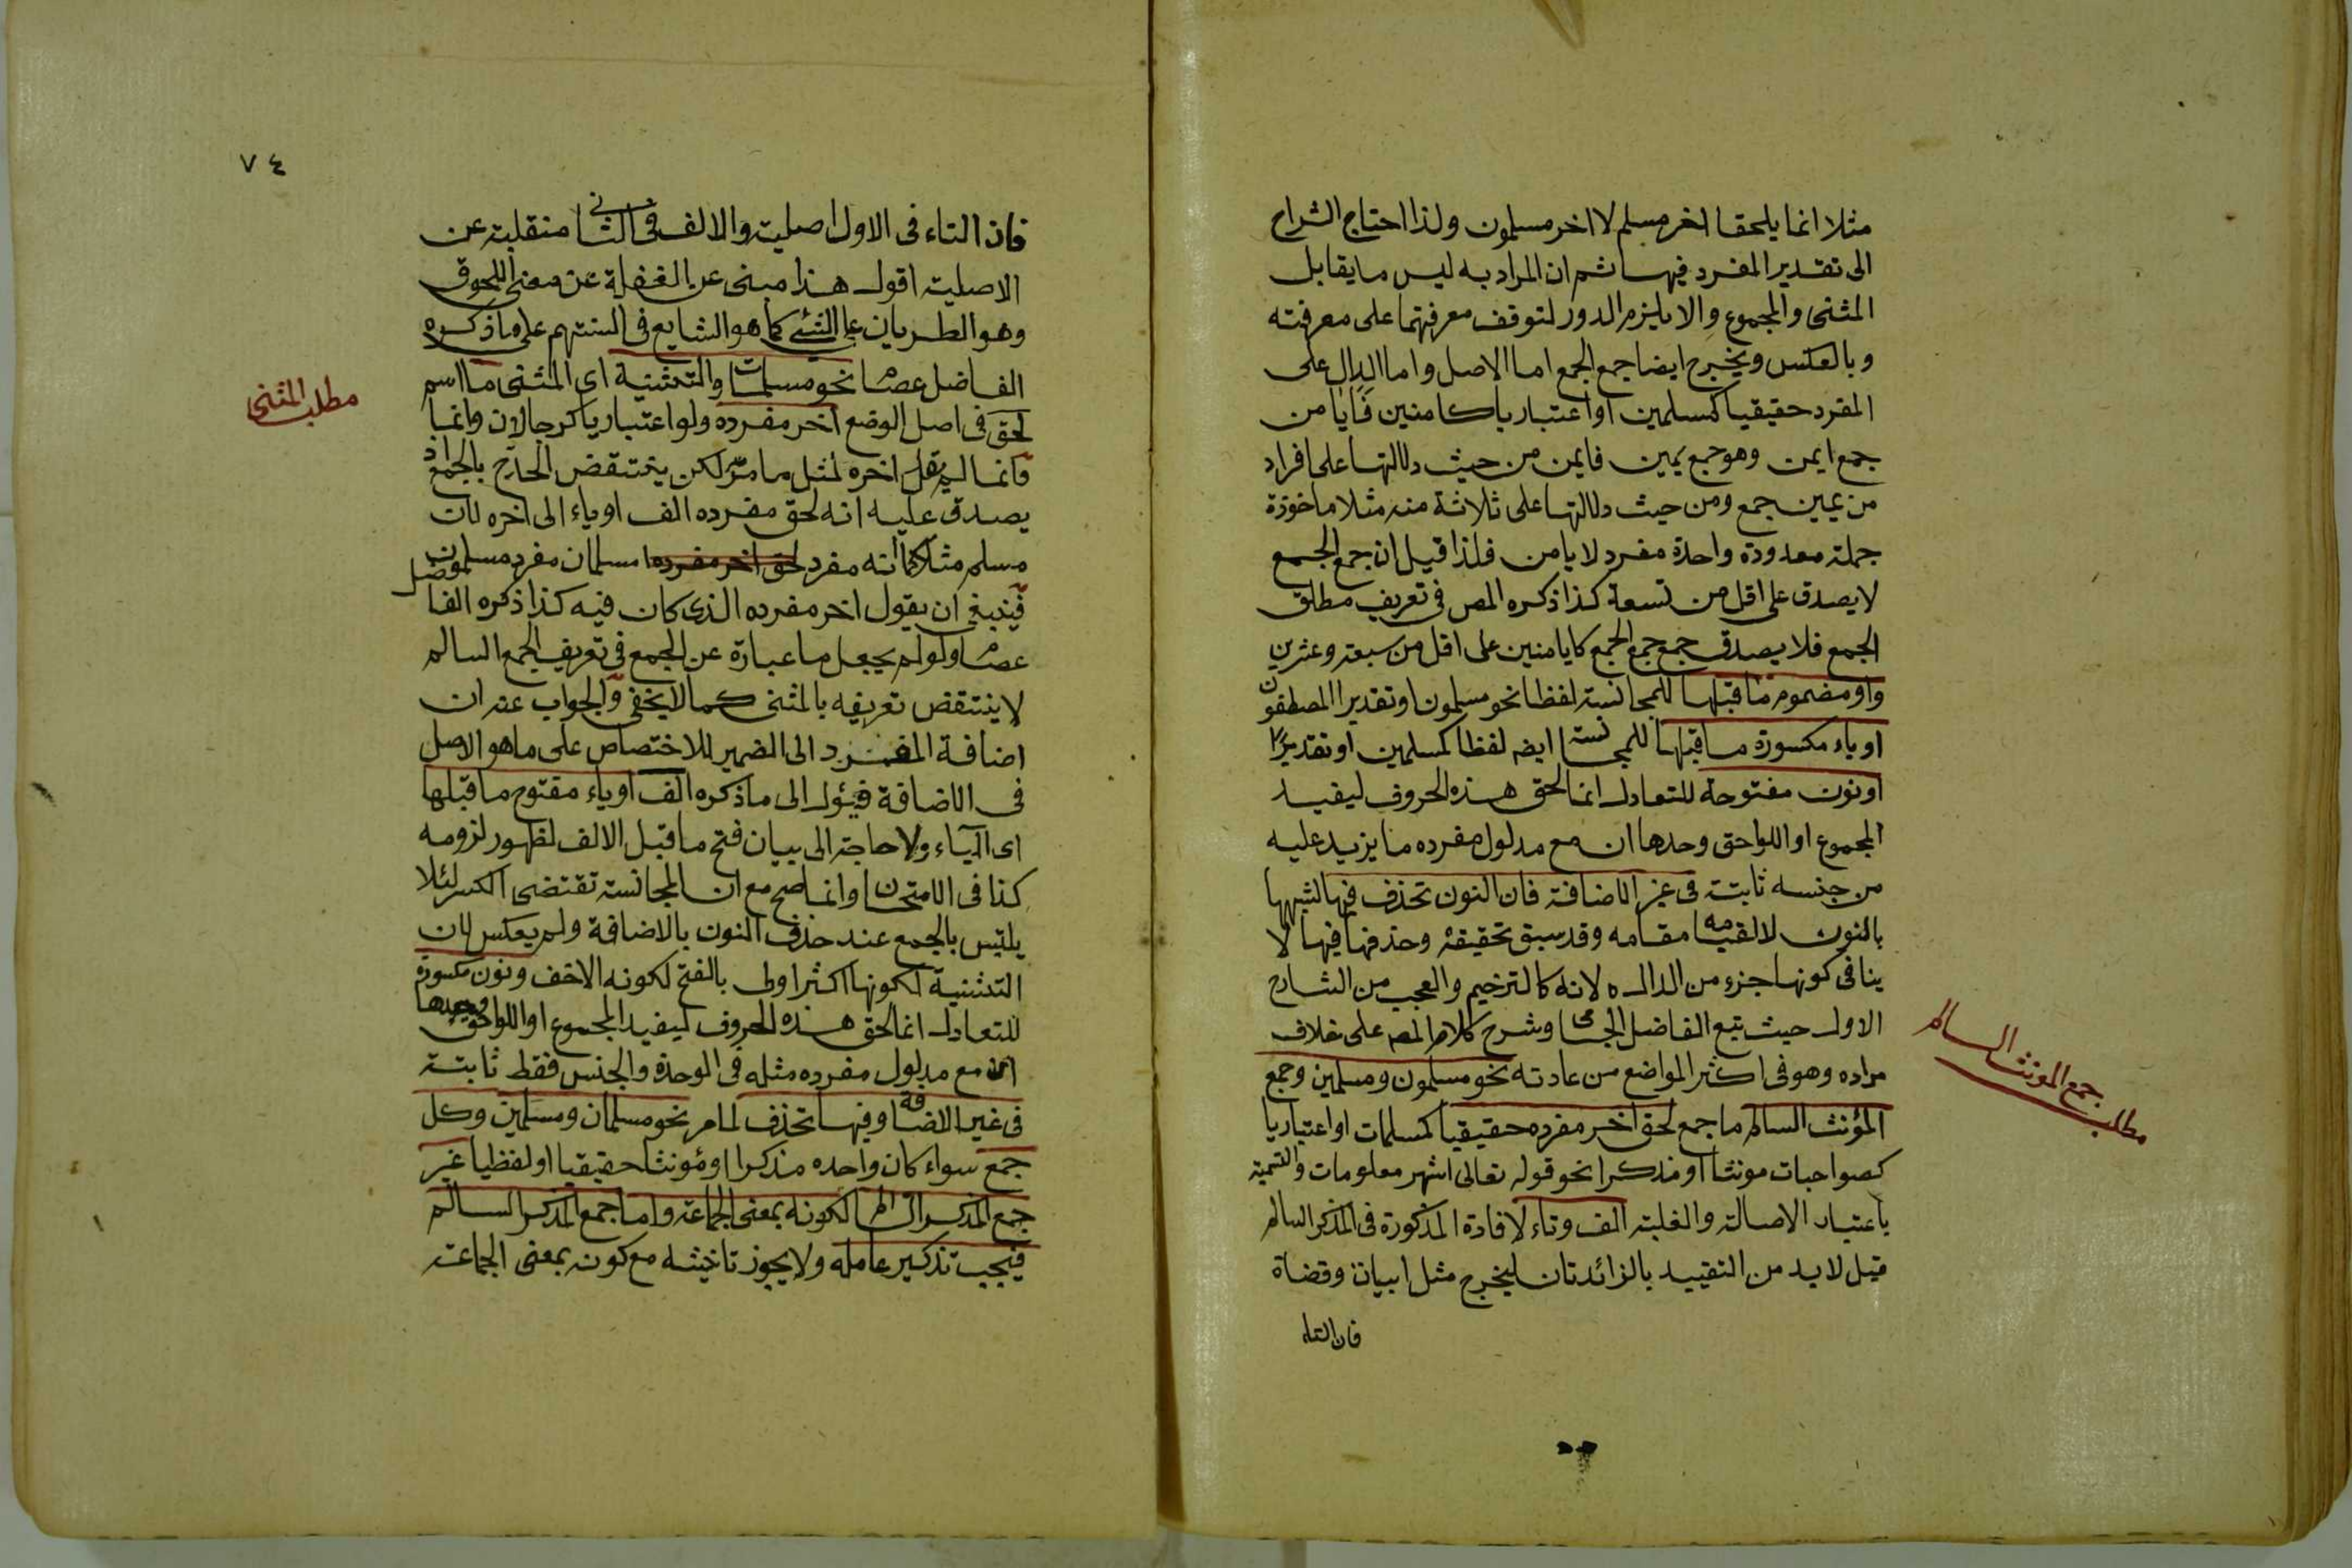 مثلا انما يلحقا اخر مسلم لا اخر مسلمون ولذا احتاج الشراح
الى تقدير المفرد فيها ثم ان المراد به ليس ما يقابل
المثنى والمجموع والا يلزم الدور لتوقف معرفتهما على معرفته
وبالعكس ويخرج ايضا جمع الجمع اما الاصل واما الدال على
المفرد حقيقيا كمسلمين او اعتباريا كامنين فايا من
جمع ايمن وهو جمع يمين فايمن من حيث دلالتها على افراد
من يمين جمع ومن حيث دلالتها على ثلاثة منه مثلا ماخوذة
جملة معدودة واحدة مفرد لايامن فلذا قيل ان جمع الجمع
لا يصدق على اقل من تسعة كذا ذكره المص فى تعريف مطلق
الجمع فلا يصدق جمع جمع الجمع كايامنين على اقل من سبعة وعشرين
واو مضموم ما قبلها للمجانسة لفظا نحو مسلمون او تقديرا المصطفون
او ياء مكسورة ما قبلها للمجانسة ايضه لفظا كمسلمين او تقديرا
او نون مفتوحة للتعادل انما لحق هذه الحروف ليفيد
المجموع او اللواحق وحدها ان مع مدلول مفرده ما يزيد عليه
من جنسه ثابتة فى غير الاضافة فان النون تحذف فيها لشبهها
بالنون لا لقيامه مقامه وقد سبق تحقيقه وحذفها فيها لا
ينافى كونها جزء من الدال ه لانه كالترخيم والعجب من الشارح
الاول حيث تبع الفاضل الجامى وشرح كلام المصه على خلاف
مراده وهو فى اكثر المواضع من عادته نحو مسلمون ومسلمين وجمع
المؤنث السالم ما جمع لحق اخر مفرده حقيقيا كمسلمات او اعتباريا
كصواحبات مونثا او مذكرا نحو قوله تعالى اشهر معلومات والتسمية
باعتبار الاصالة والغلبة الف وتاء لافادة المذكورة فى المذكر السالم
قيل لابد من التقييد بالزائدتان ليخرج مثل ابيات وقضاة
فان التاء
مطلب جمع المونث السالم
٧٤
فان التاء فى الاول اصلية والالف فى الثانى منقلبة عن
الاصلية اقول هذا مبنى عن الغفلة عن معنى اللحوق
وهو الطريان على الشئ كما هو الشايع فى السنتهم على ما ذكره
الفاضل عصام نحو مسلمات والتثنية اى المثنى ما اسم
لحق فى اصل الوضع اخر مفرده ولو اعتباريا كرجالان وانما
وانما لم يقل اخره لمثل ما مر لكن ينتقض الحارج بالجمع اذ
يصدق عليه انه لحق مفرده الف او ياء الى اخره لان
مسلم مثلا كما انه مفرد لحق اخر مفرده مسلمان مفرد مسلمون
فينبغى ان يقول اخر مفرده الذى كان فيه كذا ذكره الفاضل
عصام ولو لم يجعل ما عبارة عن الجمع فى تعريف الجمع السالم
لا ينتقض تعريفه بالمثنى كما لا يخفى والجواب عنه ان
اضافة المفرد الى الضمير للاختصاص على ما هو الاصل
فى الاضافة فيئول الى ما ذكره الف او ياء مفتوح ما قبلها
اى الياء ولا حاجة الى بيان فتح ما قبل الالف لظهور لزومه
كذا فى الامتحان وانما صح مع ان المجانسة تقتضى الكسر لئلا
يلتبس بالجمع عند حذف النون بالاضافة ولم يعكس لان
التثنية لكونها اكثر اولى بالفتح لكونه الاخف ونون مكسورة
للتعادل انما لحق هذه الحروف ليفيد المجموع او اللواحق وحدها
ان مع مدلول مفرده مثله فى الوحدة والجنس فقط ثابتة
فى غير الاضافة وفيها تحذف لما مر نحو مسلمان ومسلمين وكل
جمع سواء كان واحده مذكرا او مؤنثا حقيقيا او لفظيا غير
جمع المذكر السالم لكونه بمعنى الجماعة واما جمع المذكر السالم
فيجب تذكير عامله ولا يجوز تانيثه مع كونه بمعنى الجماعة
مطلب المثنى